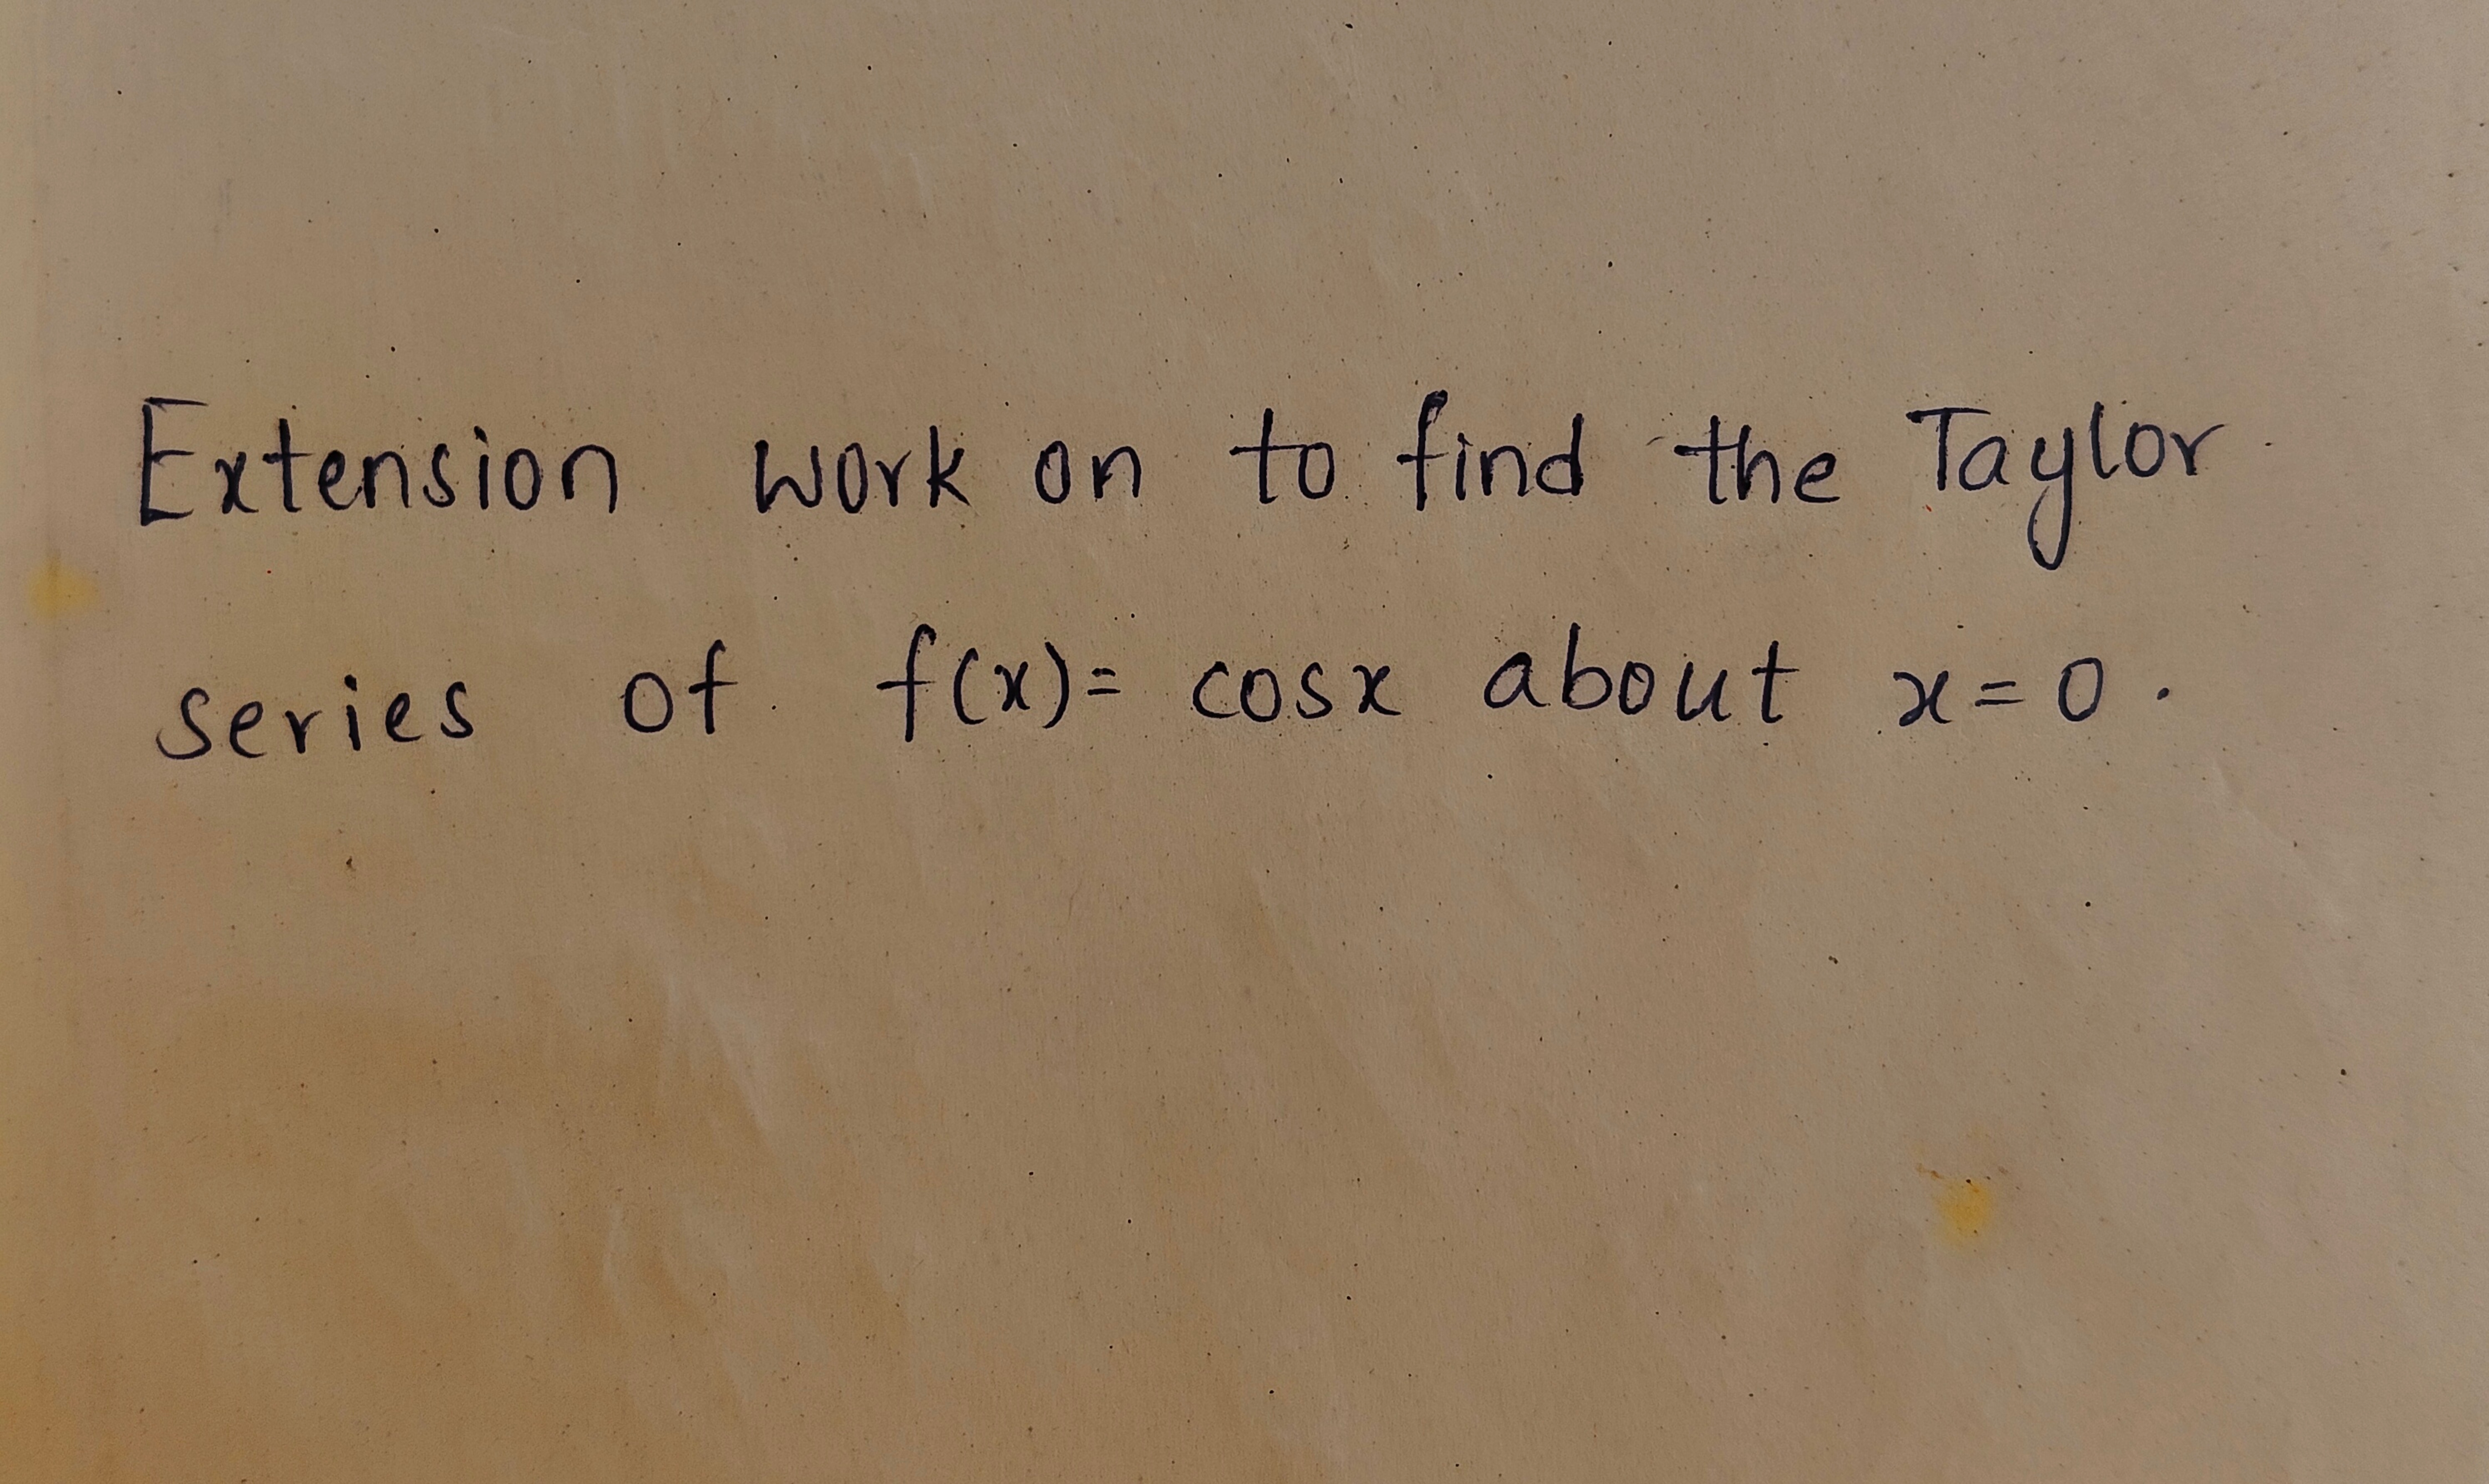 Extension work on to find the Taylor
series of f(x)= cosx about x=0.